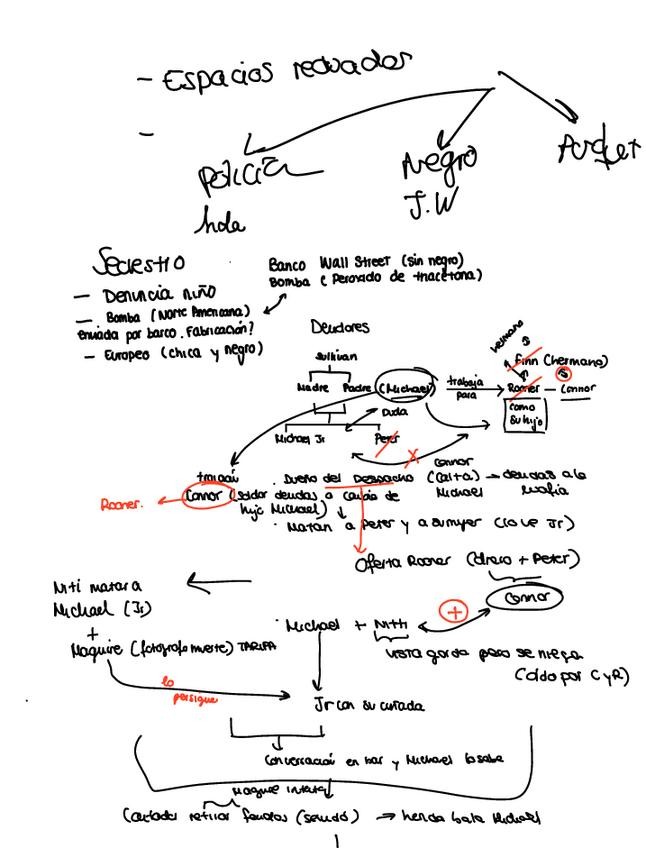 - Espacios
-
Policía
Negro
hola
J.W
Secuestro
Banco Wall Street (sin negro)
Bomba (Peroxido de triacetona)
- Denuncia niño
- Bomba (Norte Americana)
enviada por barco. Fabricación?
- Europeo (chica y negro)
Deudores
Sullivan
hermano
Finn (hermano)
Madre Padre (Michael) trabaja para Rooner - Connor
como su hijo
Duda
Michael Jr Peter
Connor
traición
. Dueño del Despacho (carta) → deudas a la mafia
Michael
Rooner. Connor (saldar deudas a cambio de
hijo Michael)
. Matan a Peter y a su mujer (lo ve Jr)
Oferta Rooner (dinero + Peter)
Connor
Nitti matar a
Michael (Jr)
+
. Michael + Nitti
+
Maguire (fotógrafo muerte) TARIFA
vista gorda pero se niega
(caldo por C y R)
lo persigue
Jr con su cuñada
Conversación en bar y Michael lo sabe
Maguire intenta
retirar (senudó) → herida bala Michael